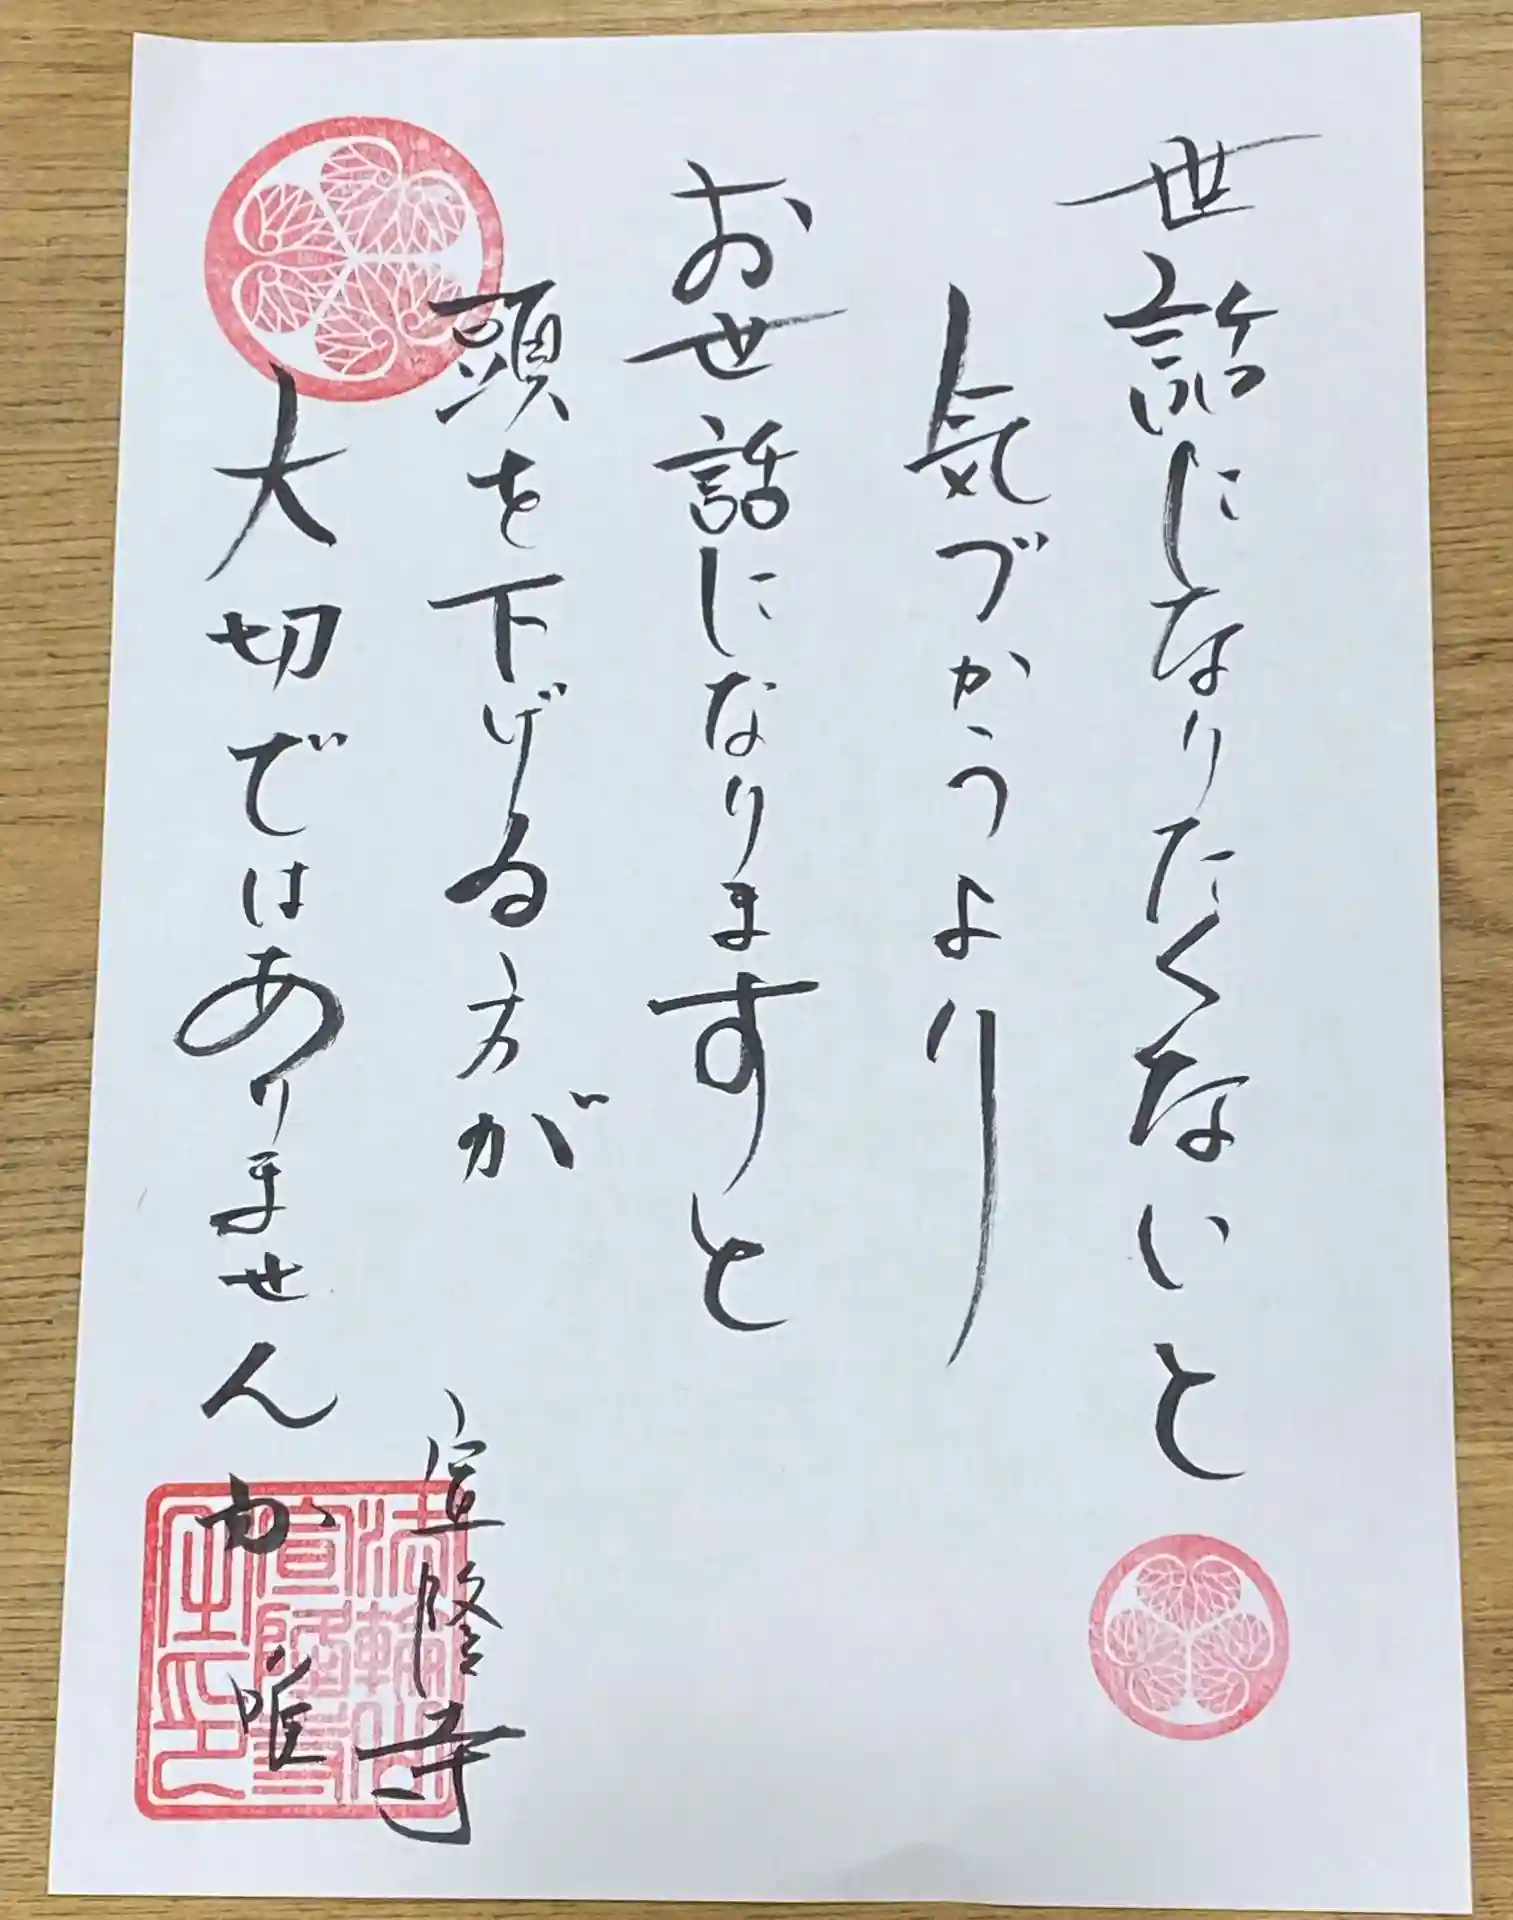 世話になりたくないと
気づかうより
お世話になりますと
頭を下げる方が
大切ではありませんか
宣隆寺
唯
法輪山
宣隆寺